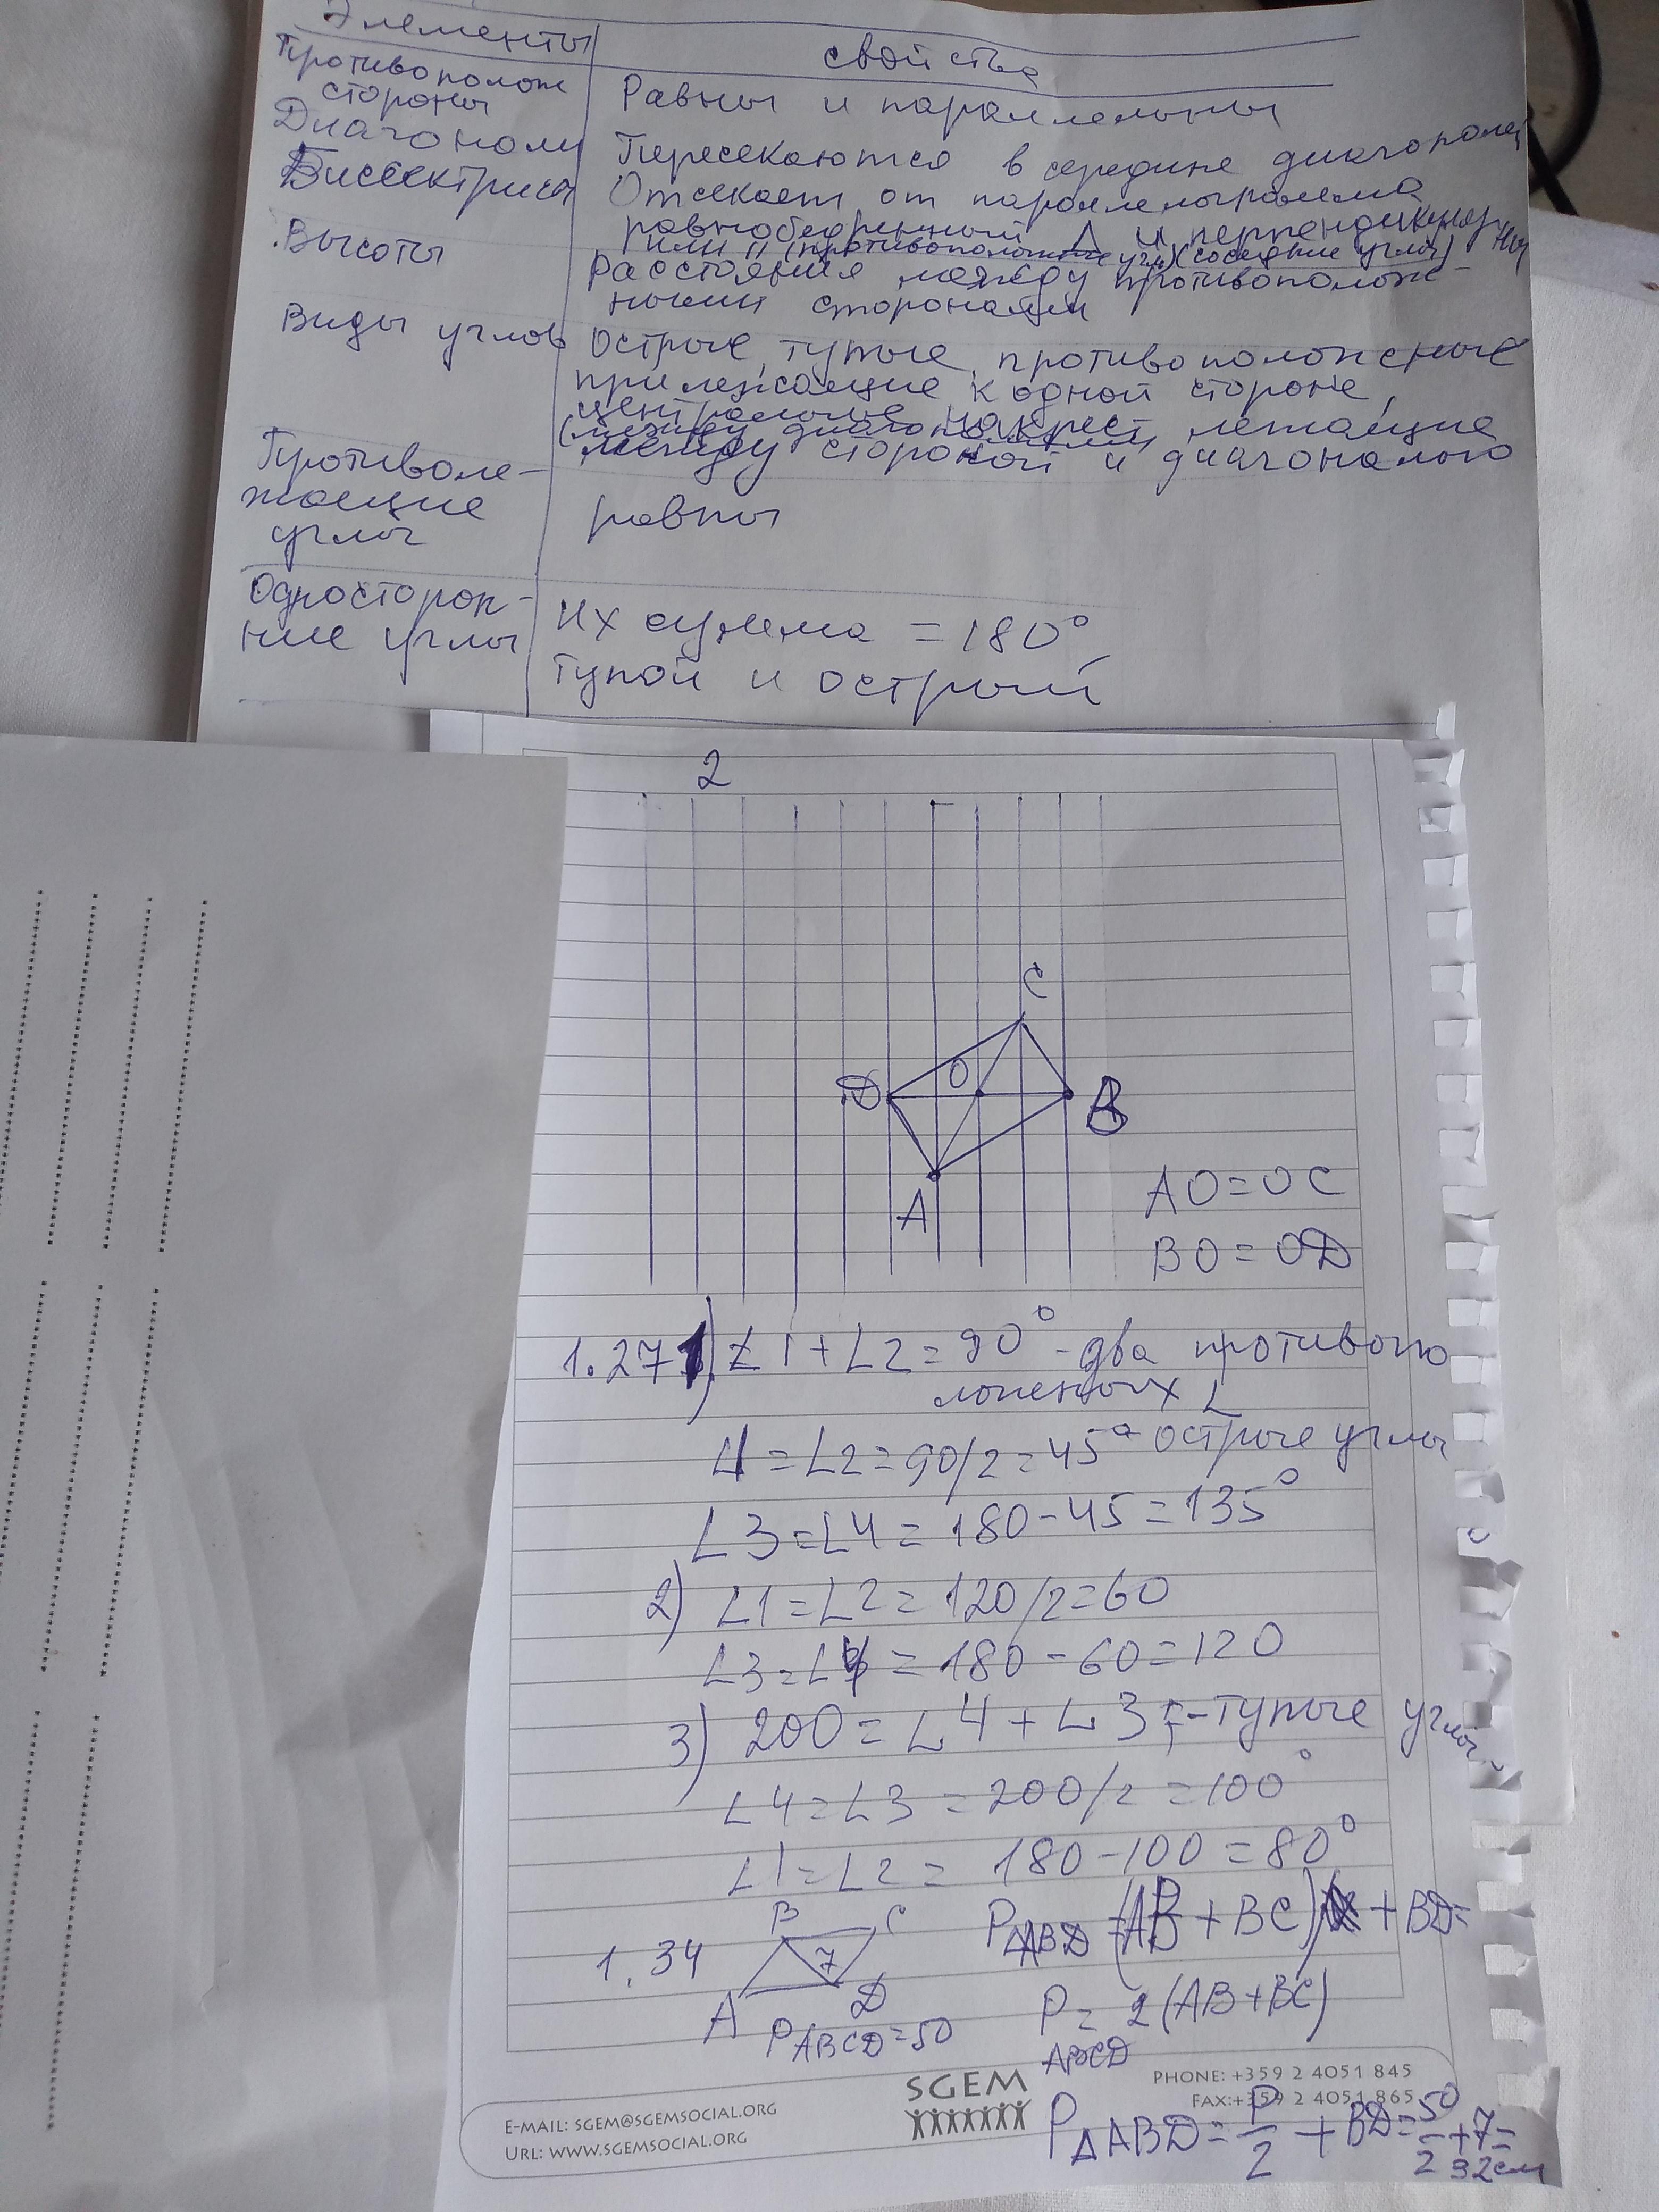 Элементы
свойства
Противополож
стороны
Равны и параллельны
Диагонали
Пересекаются в середине диагоналей
Биссектриса
Отсекает от параллелограмма
равнобедренный Δ и перпендикуляр
или || (противоположные углы) (соседние углы) ны
Высоты
Расстояния между противополож-
ными сторонами
Виды углов
Острые, тупые, противоположные
прилежащие к одной стороне,
центральные накрест лежащие
(между диагоналями)
между стороной и диагональю
Противоле-
жащие
углы
равны
Односторон-
ние углы
Их сумма = 180°,
тупой и острый
2
C
D
O
B
A
AO=OC
BO=OD
1.27 1) ∠1+∠2=90° - два противопо
ложных ∠
∠1=∠2=90/2=45° острые углы
∠3=∠4=180-45=135°
2) ∠1=∠2=120/2=60
∠3=∠4=180-60=120
3) 200=∠4+∠3 - тупые углы
∠4=∠3=200/2=100°
∠1=∠2= 180-100=80°
1.34
B C
7
A D
P ABCD=50
PΔABD=(AB+BC)+BD=
P ABCD = 2(AB+BC)
PΔABD=P/2+BD=50/2+7=
32см
SGEM
E-MAIL: SGEM@SGEMSOCIAL.ORG
URL: WWW.SGEMSOCIAL.ORG
PHONE: +359 2 4051 845
FAX:+359 2 4051 865